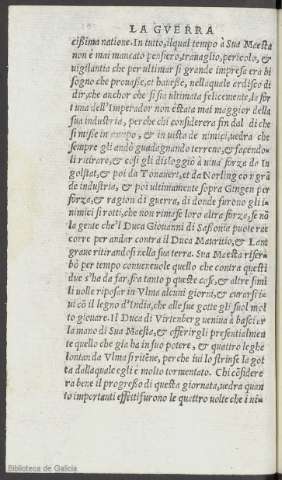 LA GVERRA
cißima natione. In tutto, ilqual tempo à Sua Maesta
non è mai mancato pensiero, trauaglio, pericolo, &
uigilantia che per ultimar si grande impresa era bi
sogno che prouasse, et hauesse, nellaquale ardisco di
dir, che anchor che si sia ultimata felicemente, la for
tuna dell'Imperador non è stata mai maggior della
sua industria, perche chi considerera fin dal di che
si misse in campo, & in uista de nimici, uedra che
sempre gli andò guadagnando terreno, & facendo-
li ritirare, & cosi gli disloggiò à uiua forza da In
golstat, & poi da Tonauert, et da Norling con grã
de industria, & poi ultimamente sopra Gingen per
forza, & ragion di guerra, di donde furono gli i-
nimici si rotti, che non rimase loro altra forza, se nõ
la gente che'l Duca Giouanni di Sassonia puote rac
corre per andar contra il Duca Mauritio, & Lant
graue ritirandosi nella sua terra. Sua Maestà riser
bò per tempo conueneuole quello che contra questi
due s'ha da far, sra tanto p queste cose, & altre simi
li uolle riposar in Vlma alcuni giorni, & curarsi i-
ui cõ il legno d'India, che alle sue gotte gli suol mol
to giouare. Il Duca di Virtenberg ueniua à basciar
la mano di Sua Maestà, & offerirgli presentialmen
te quello che già ha in suo potere, & quattro leghe
lontan da Vlma si ritẽne, perche iui lo strinse la got
ta dallaquale egli è molto tormentato. Chi cõsidere
ra bene il progresso di questa giornata, uedra quan
to importanti effetti furono le quattro uolte che i ni-
Biblioteca de Galicia